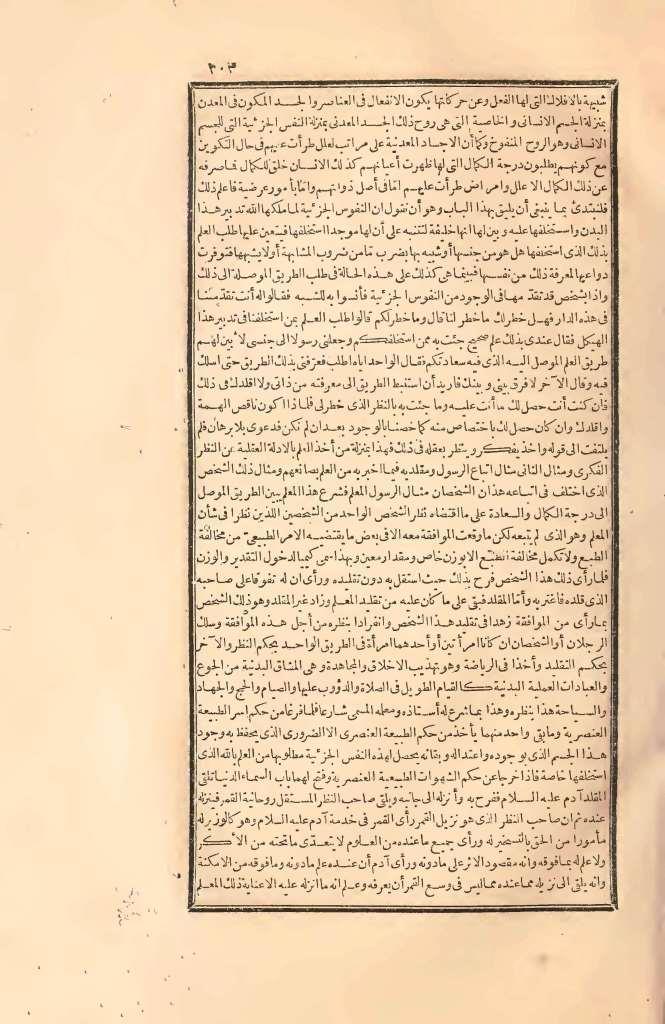 ٣٠٣
شبيهة بالافلاك التي لها الفعل وعن حركاتها يكون الانفعال في العناصر والجسد المكون في المعدن
بمنزلة الجسم الانساني والخاصية التي هي روح ذلك الجسد المعدني بمنزلة النفس الجزئية التي للجسم
الانساني وهو الروح المنفوخ وكما أن الاجساد المعدنية على مراتب لعلل طرأت عليهم في حال التكوين
مع كونهم يطلبون درجة الكمال التي لها ظهرت أعيانهم كذلك الانسان خلق للكمال فما صرفه
عن ذلك الكمال الا علل وامراض طرأت عليهم اما في أصل ذواتهم واما بأمور عرضية فاعلم ذلك
فلنبتدئ بما ينبغي أن يليق بهذا الباب وهو أن نقول ان النفوس الجزئية لما ملكها الله تدبير هذا
البدن واستخلفها عليه وبين لها انها خليفة فيه لتتنبه على أن لها موجدا استخلفها فيتعين عليها طلب العلم
بذلك الذي استخلفها هل هو من جنسها أو شبيه بها بضرب ما من ضروب المشابهة أو لا يشبهها فتوفرت
دواعيها لمعرفة ذلك من نفسها فبينما هي كذلك على هذه الحالة في طلب الطريق الموصلة الى ذلك
واذا بشخص قد تقدمها في الوجود من النفوس الجزئية فأنسوا به للشبه فقالوا له أنت تقدمتنا
في هذه الدار فهل خطر لك ما خطر لنا قال وما خطر لكم قالوا طلب العلم بمن استخلفنا في تدبير هذا
الهيكل فقال عندي بذلك علم صحيح جئت به ممن استخلفكم وجعلني رسولا الى جنسي لأبين لهم
طريق العلم الموصل اليه الذي فيه سعادتكم فقال الواحد اياه اطلب فعرفني بذلك الطريق حتى اسلك
فيه وقال الآخر لا فرق بيني وبينك فاريد أن استنبط الطريق الى معرفته من ذاتي ولا اقلدك في ذلك
فان كنت أنت حصل لك ما أنت عليه وما جئت به بالنظر الذي خطر لي فلماذا أكون ناقص الهمة
واقلدك وان كان حصل لك باختصاص منه كما خصنا بالوجود بعد ان لم نكن فدعوى بلا برهان فلم
يلتفت الى قوله واخذ يفكر وينظر بعقله في ذلك فهذا بمنزلة من أخذ العلم بالادلة العقلية عن النظر
الفكري ومثال الثاني مثال اتباع الرسول ومقلديه فيما اخبر به من العلم بصانعهم ومثال ذلك الشخص
الذي اختلف في اتباعه هذان الشخصان مثال الرسول المعلم فشرع هذا المعلم يبين الطريق الموصل
الى درجة الكمال والسعادة على ما اقتضاه نظر الشخص الواحد من الشخصين اللذين نظرا في شأن
المعلم وهو الذي لم يتبعه لكن ما وقعت الموافقة معه الا في بعض ما يقتضيه الامر الطبيعي من مخالفة
الطبع ولا تكمل مخالفة الطبع الا بوزن خاص ومقدار معين وبهذا سمي كيميا لدخول التقدير والوزن
فلما رأى ذلك هذا الشخص فرح بذلك حيث استقل به دون تقليده ورأى ان له تفوقا على صاحبه
الذي قلده فاغتر به وأما المقلد فبقي على ما كان عليه من تقليد المعلم وزاد غير المقلد وهو ذلك الشخص
بما رأى من الموافقة زهدا في تقليد هذا الشخص وانفرد ابنظره من أجل هذه الموافقة وسلك
الرجلان أو الشخصان ان كانا امرأتين أو أحدهما امرأة في الطريق الواحد بحكم النظر والآخر
بحكم التقليد وأخذا في الرياضة وهو تهذيب الاخلاق والمجاهدة وهي المشاق البدنية من الجوع
والعبادات العملية البدنية كالقيام الطويل في الصلاة والدؤوب عليها والصيام والحج والجهاد
والسياحة هذا بنظره وهذا بما شرع له أستاذه ومعلمه المسمى شارعا فلما فرغا من حكم اسر الطبيعة
العنصرية وما بقي واحد منهما يأخذ من حكم الطبيعة العنصرية الا الضروري الذي يحفظ به وجود
هذا الجسم الذي بوجوده واعتداله وبقائه يحصل لهذه النفس الجزئية مطلوبها من العلم بالله الذي
استخلفها خاصة فاذا خرجا عن حكم الشهوات الطبيعية العنصرية وفتح لهما باب السماء الدنيا تلقى
المقلد آدم عليه السلام ففرح به وأنزله الى جانبه وتلقى صاحب النظر المستقل روحانية القمر فينزله
عنده ثم ان صاحب النظر الذي هو نزيل القمر رأى القمر في خدمة آدم عليه السلام وهو كالوزير له
مأمورا من الحق بالتسخير له ورأى جميع ما عنده من العلوم لا يتعدى ما تحته من الأكر
ولا علم له بما فوقه وانه مقصور الاثر على ما دونه ورأى آدم أن عنده علم ما دونه وما فوقه من الامكنة
وانه يلقي الى نزيله مما عنده مما ليس في وسع القمر أن يعرفه وعلم انه ما انزله عليه الا عناية ذلك المعلم